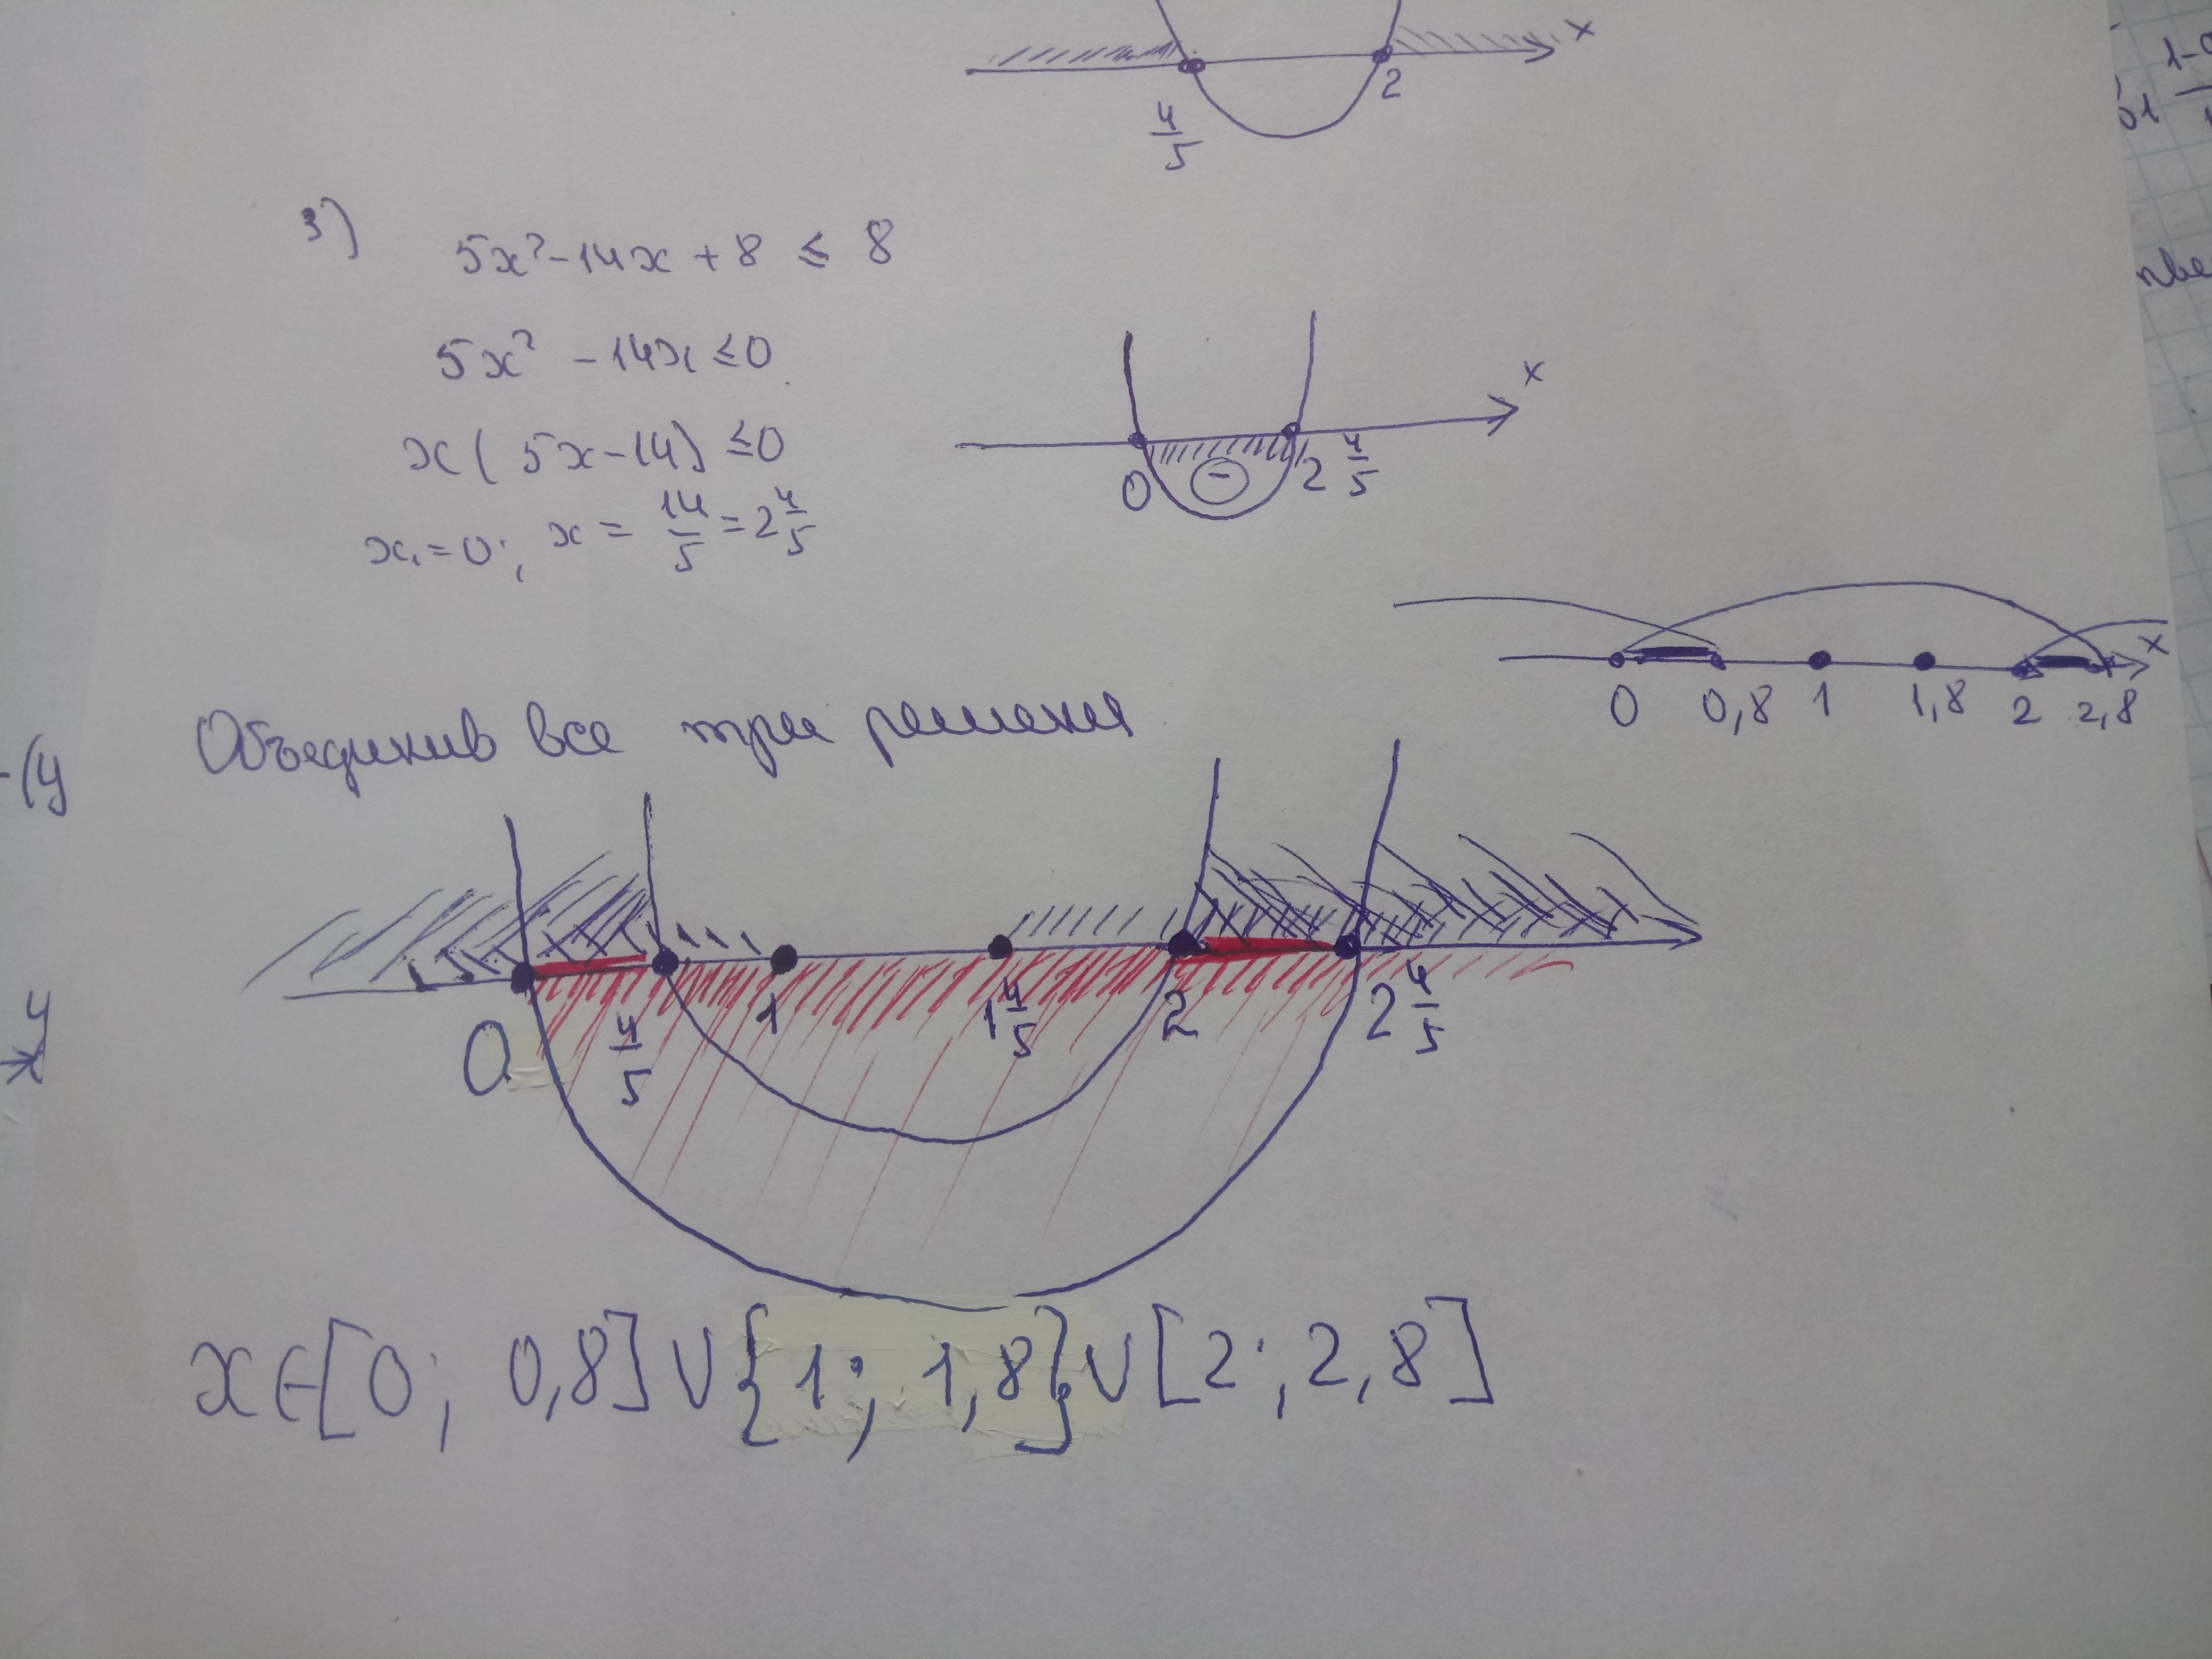 x
4/5 2
3)
5x² - 14x + 8 ≤ 8
5x² - 14x ≤ 0
x(5x - 14) ≤ 0
x₁ = 0; x = 14/5 = 2 4/5
x
0 - 2 4/5
x
0 0,8 1 1,8 2 2,8
Объединив все три решения
0 4/5 1 1 4/5 2 2 4/5
x ∈ [0; 0,8] ∪ {1; 1,8} ∪ [2; 2,8]
-(y
y